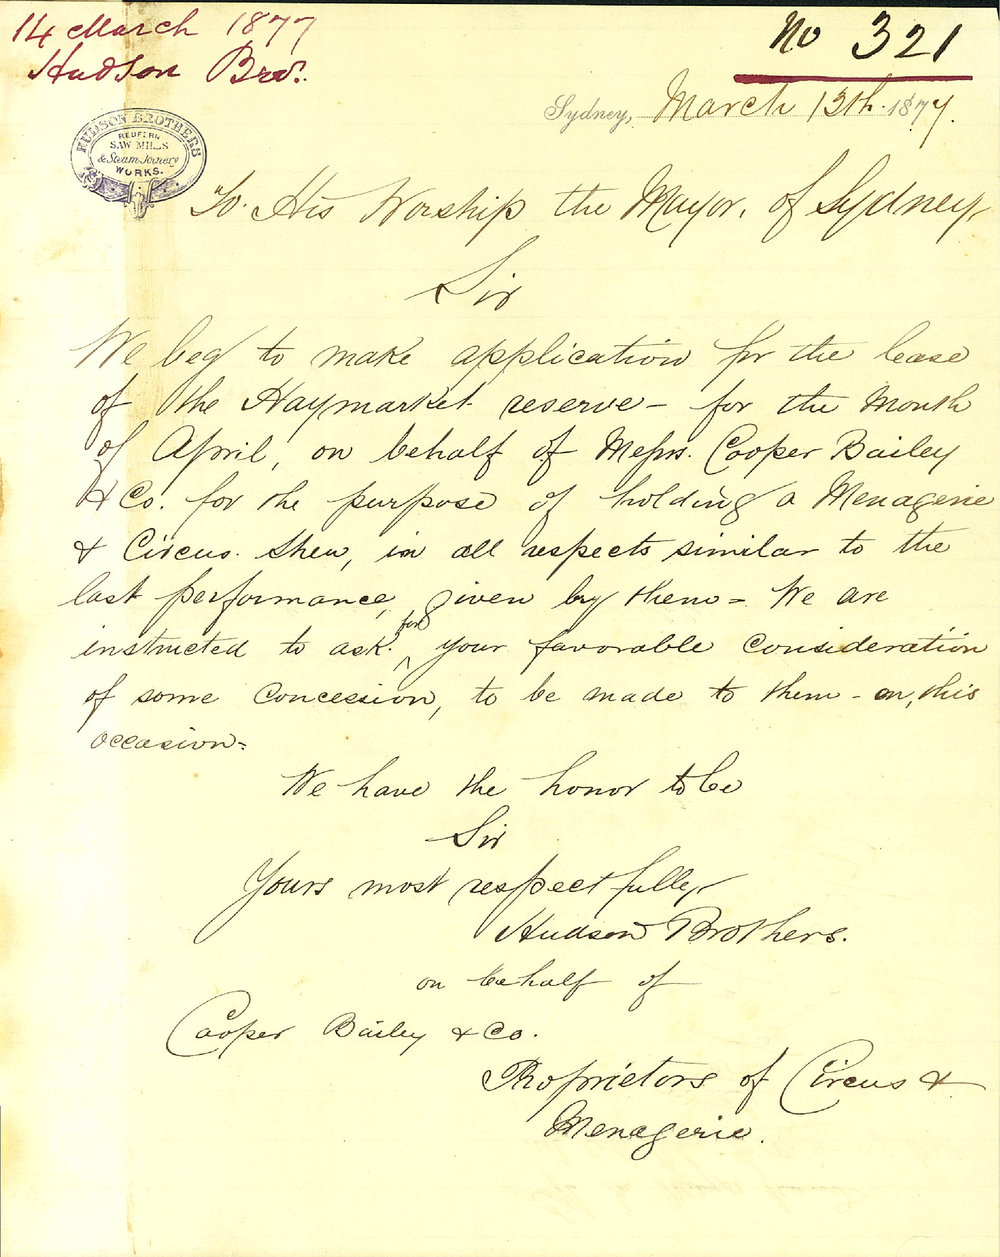 14 March 1877
Hudson Bros.
No 321
Sydney, March 13th. 1877.
HUDSON BROTHERS
REDFERN
SAW MILLS
& Steam Joinery
WORKS.
To. His Worship the Mayor, of Sydney
Sir
We beg to make application for the lease
of the Haymarket reserve – for the Month
of April, on behalf of Messrs. Cooper Bailey
& Co. for the purpose of holding a Menagerie
& Circus. Shew, in all respects similar to the
last performance, given by them = We are
instructed to ask. for your favorable consideration
of some concession, to be made to them – on, this
occasion =
We have the honor to be
Sir
Yours most respectfully
Hudson Brothers.
on behalf of
Cooper Bailey & Co.
Proprietors of Circus &
Menagerie.